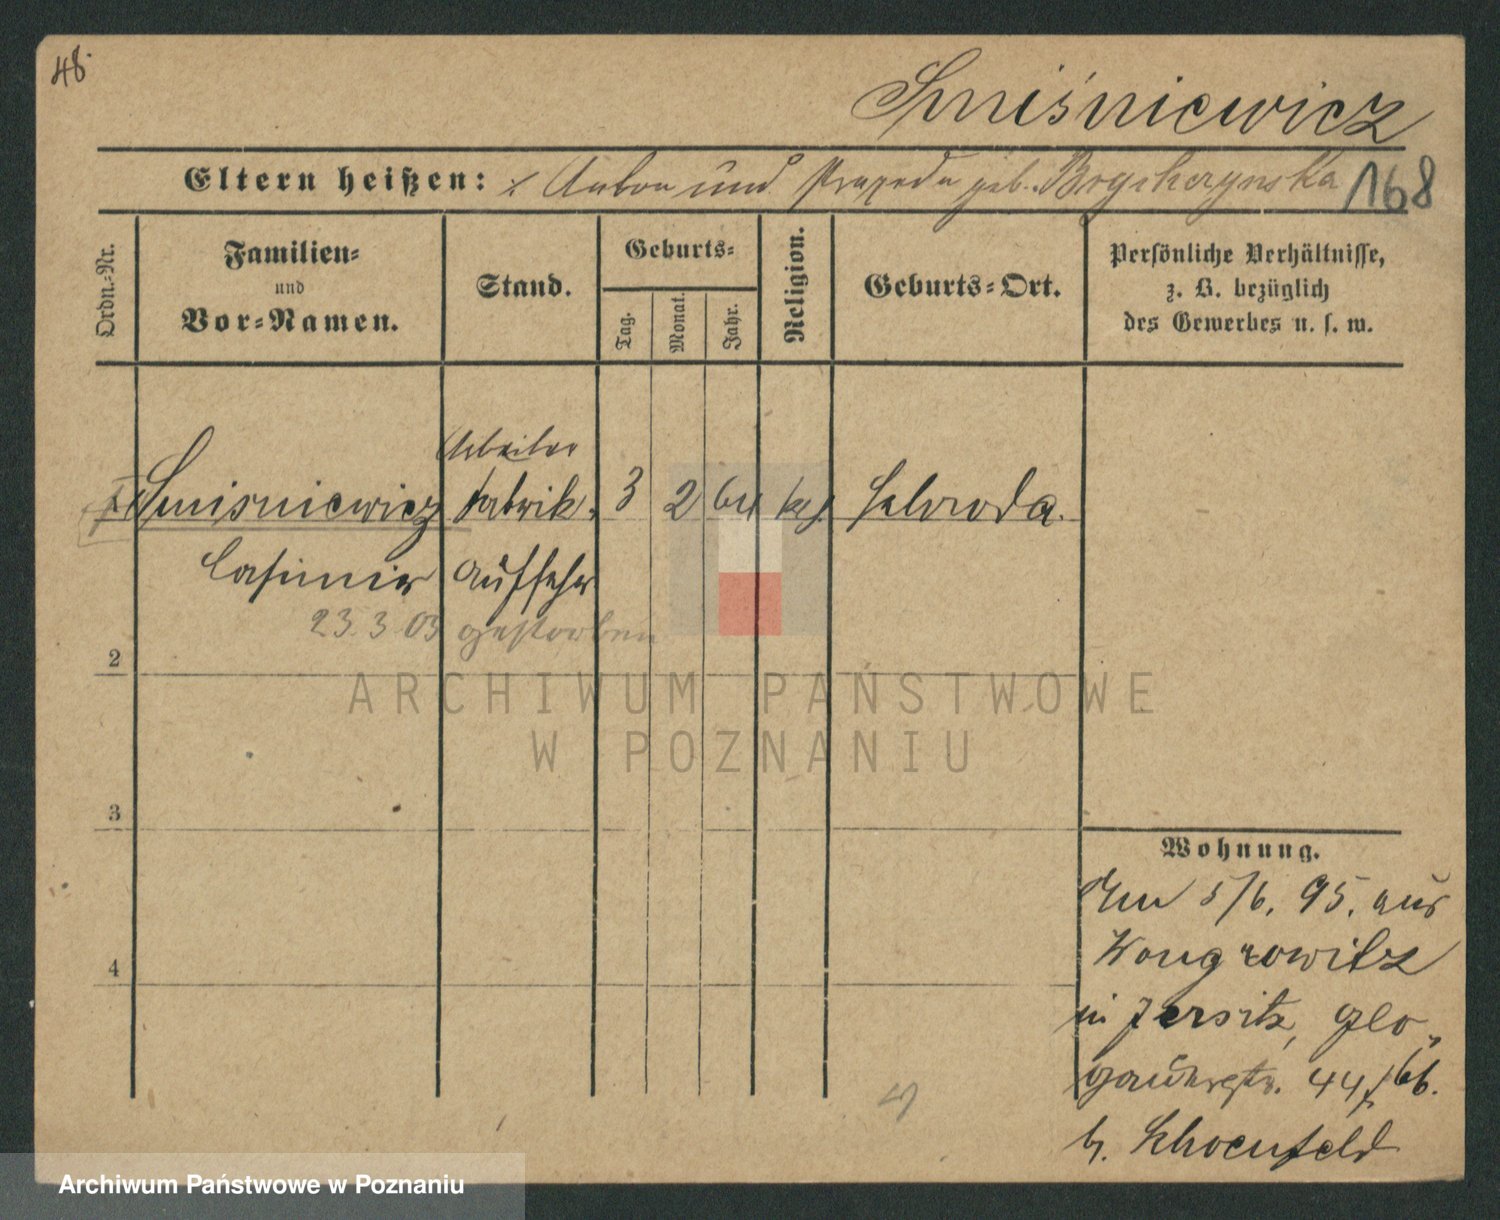 48.
Smiśniewicz
Eltern heißen: Anton und Praxeda geb. Bryckczynska 168
Ordn.-Nr.
Familien-
und
Vor-Namen.
Stand.
Geburts-
Tag.
Monat.
Jahr.
Religion.
Geburts-Ort.
Persönliche Verhältnisse,
z. B. bezüglich
des Gewerbes u. s. w.
Arbeiter
Smisniewicz Fabrik- 3 2 64 kath. Schroda.
Casimir Aufseher
23.3 03 gestorben
2
ARCHIWUM PAŃSTWOWE
W POZNANIU
3
4
Wohnung.
5/6. 95. aus
Wongrowitz
in Jersitz, Glo-
gauerstr. 44/66.
b. Schoenfeld
Archiwum Państwowe w Poznaniu